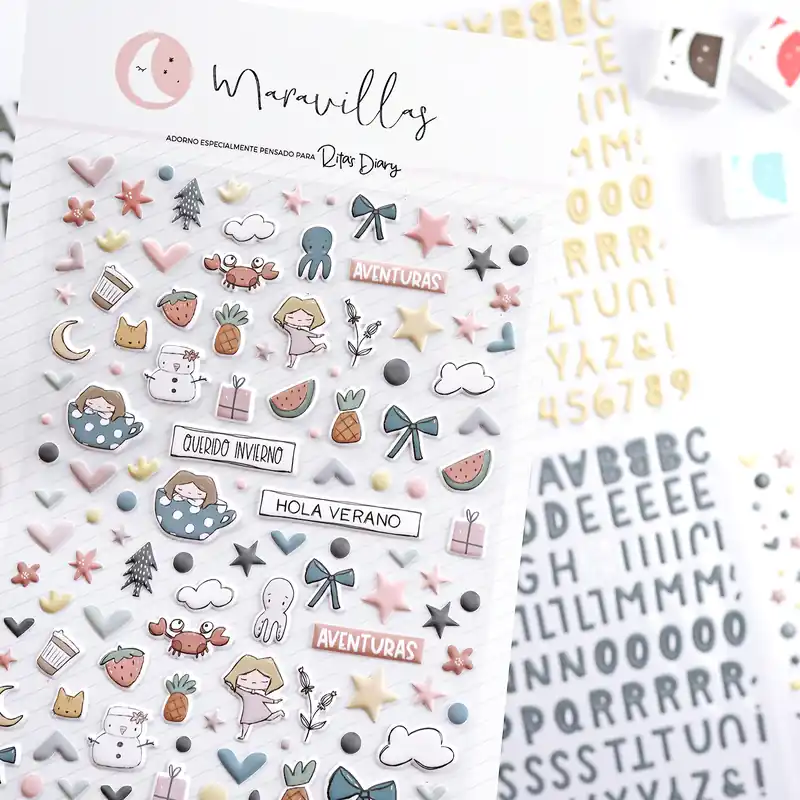 Maravillas
ADORNO ESPECIALMENTE PENSADO PARA Rita's Diary
AVENTURAS
QUERIDO INVIERNO
HOLA VERANO
AVENTURAS
BBBC
EE
MM!
OOO
RRR.
LTUNI
YYZ&!
456789
AABBBC
DDEEEEE
GH IIIIII
LLLLMMM!
NNNOOOOO
PPQRRRRR.
SSSSTTTUNI
YYYZ&!